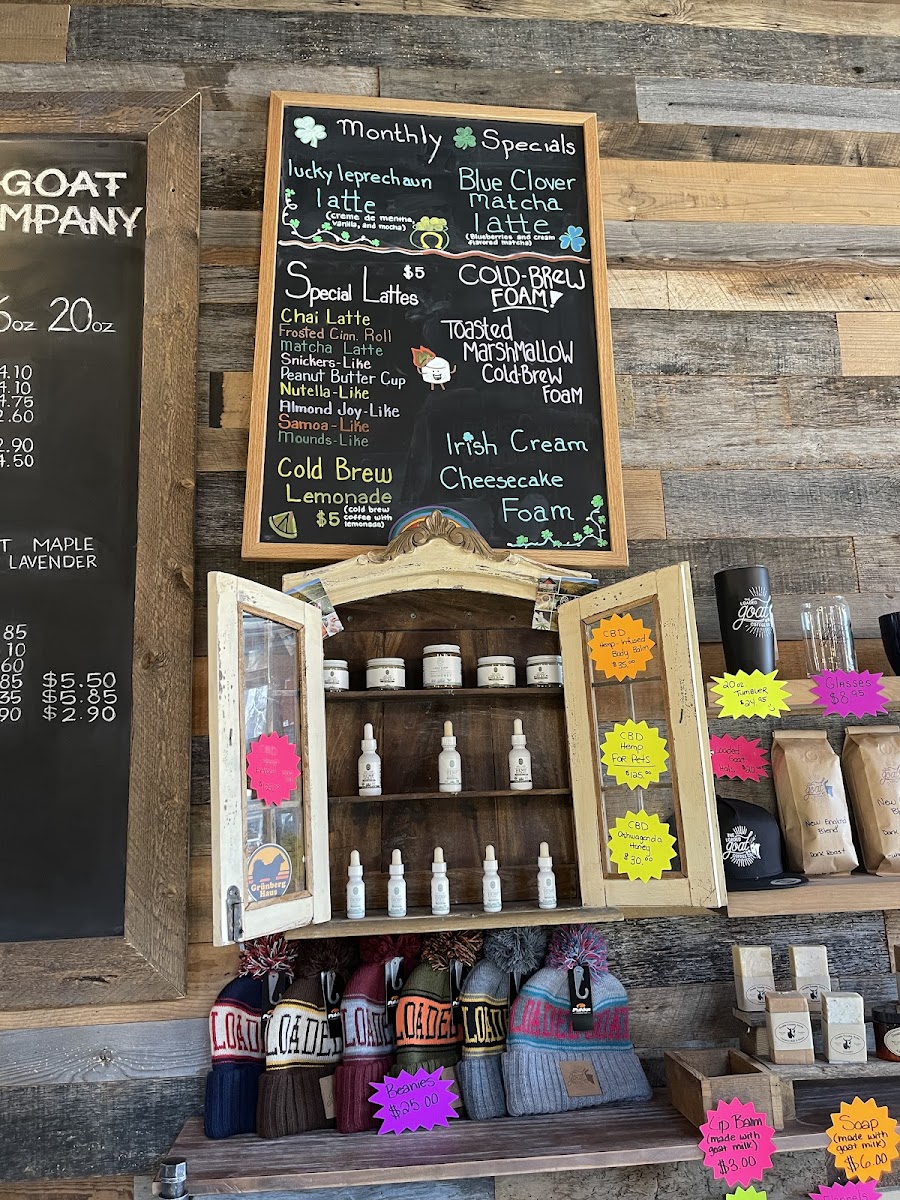 GOAT
MPANY
oz 20oz
4.10
4.10
4.75
2.60
2.90
4.50
T MAPLE
LAVENDER
85
10
60
85 $5.50
35 $5.85
90 $2.90
Monthly Specials
lucky leprechaun
latte
(creme de menthe,
vanilla, and mocha)
Blue Clover
matcha
latte
(Blueberries and cream
flavored matcha)
Special Lattes $5
Chai Latte
Frosted Cinn. Roll
Matcha Latte
Snickers-Like
Peanut Butter Cup
Nutella-Like
Almond Joy-Like
Samoa-Like
Mounds-Like
Cold Brew
Lemonade
$5 (cold brew
coffee with
lemonada)
COLD-BREW
FOAM!
Toasted
MarshMallow
Cold-Brew
Foam
Irish Cream
Cheesecake
Foam
CBD
Hemp-Infused
Body Balm
$35.00
CBD
Hemp
For Pets
$125.00
CBD
Ashwaganda
Honey
$30.00
CBD
Grünberg
Haus
THE LOADED
goat
COFFEE CO
20oz
Tumbler
$24.95
Glasses
$8.95
Loaded
Goat
Hats
goat
New England
Blend
Dark Roast
goat
New
Dark
goat
LOAD
LOADE
LOADE
LOADED
LOAD
LOADED GOAT
Beanies
$25.00
Lip Balm
(made with
goat milk)
$3.00
Soap
(made with
goat milk)
$6.00